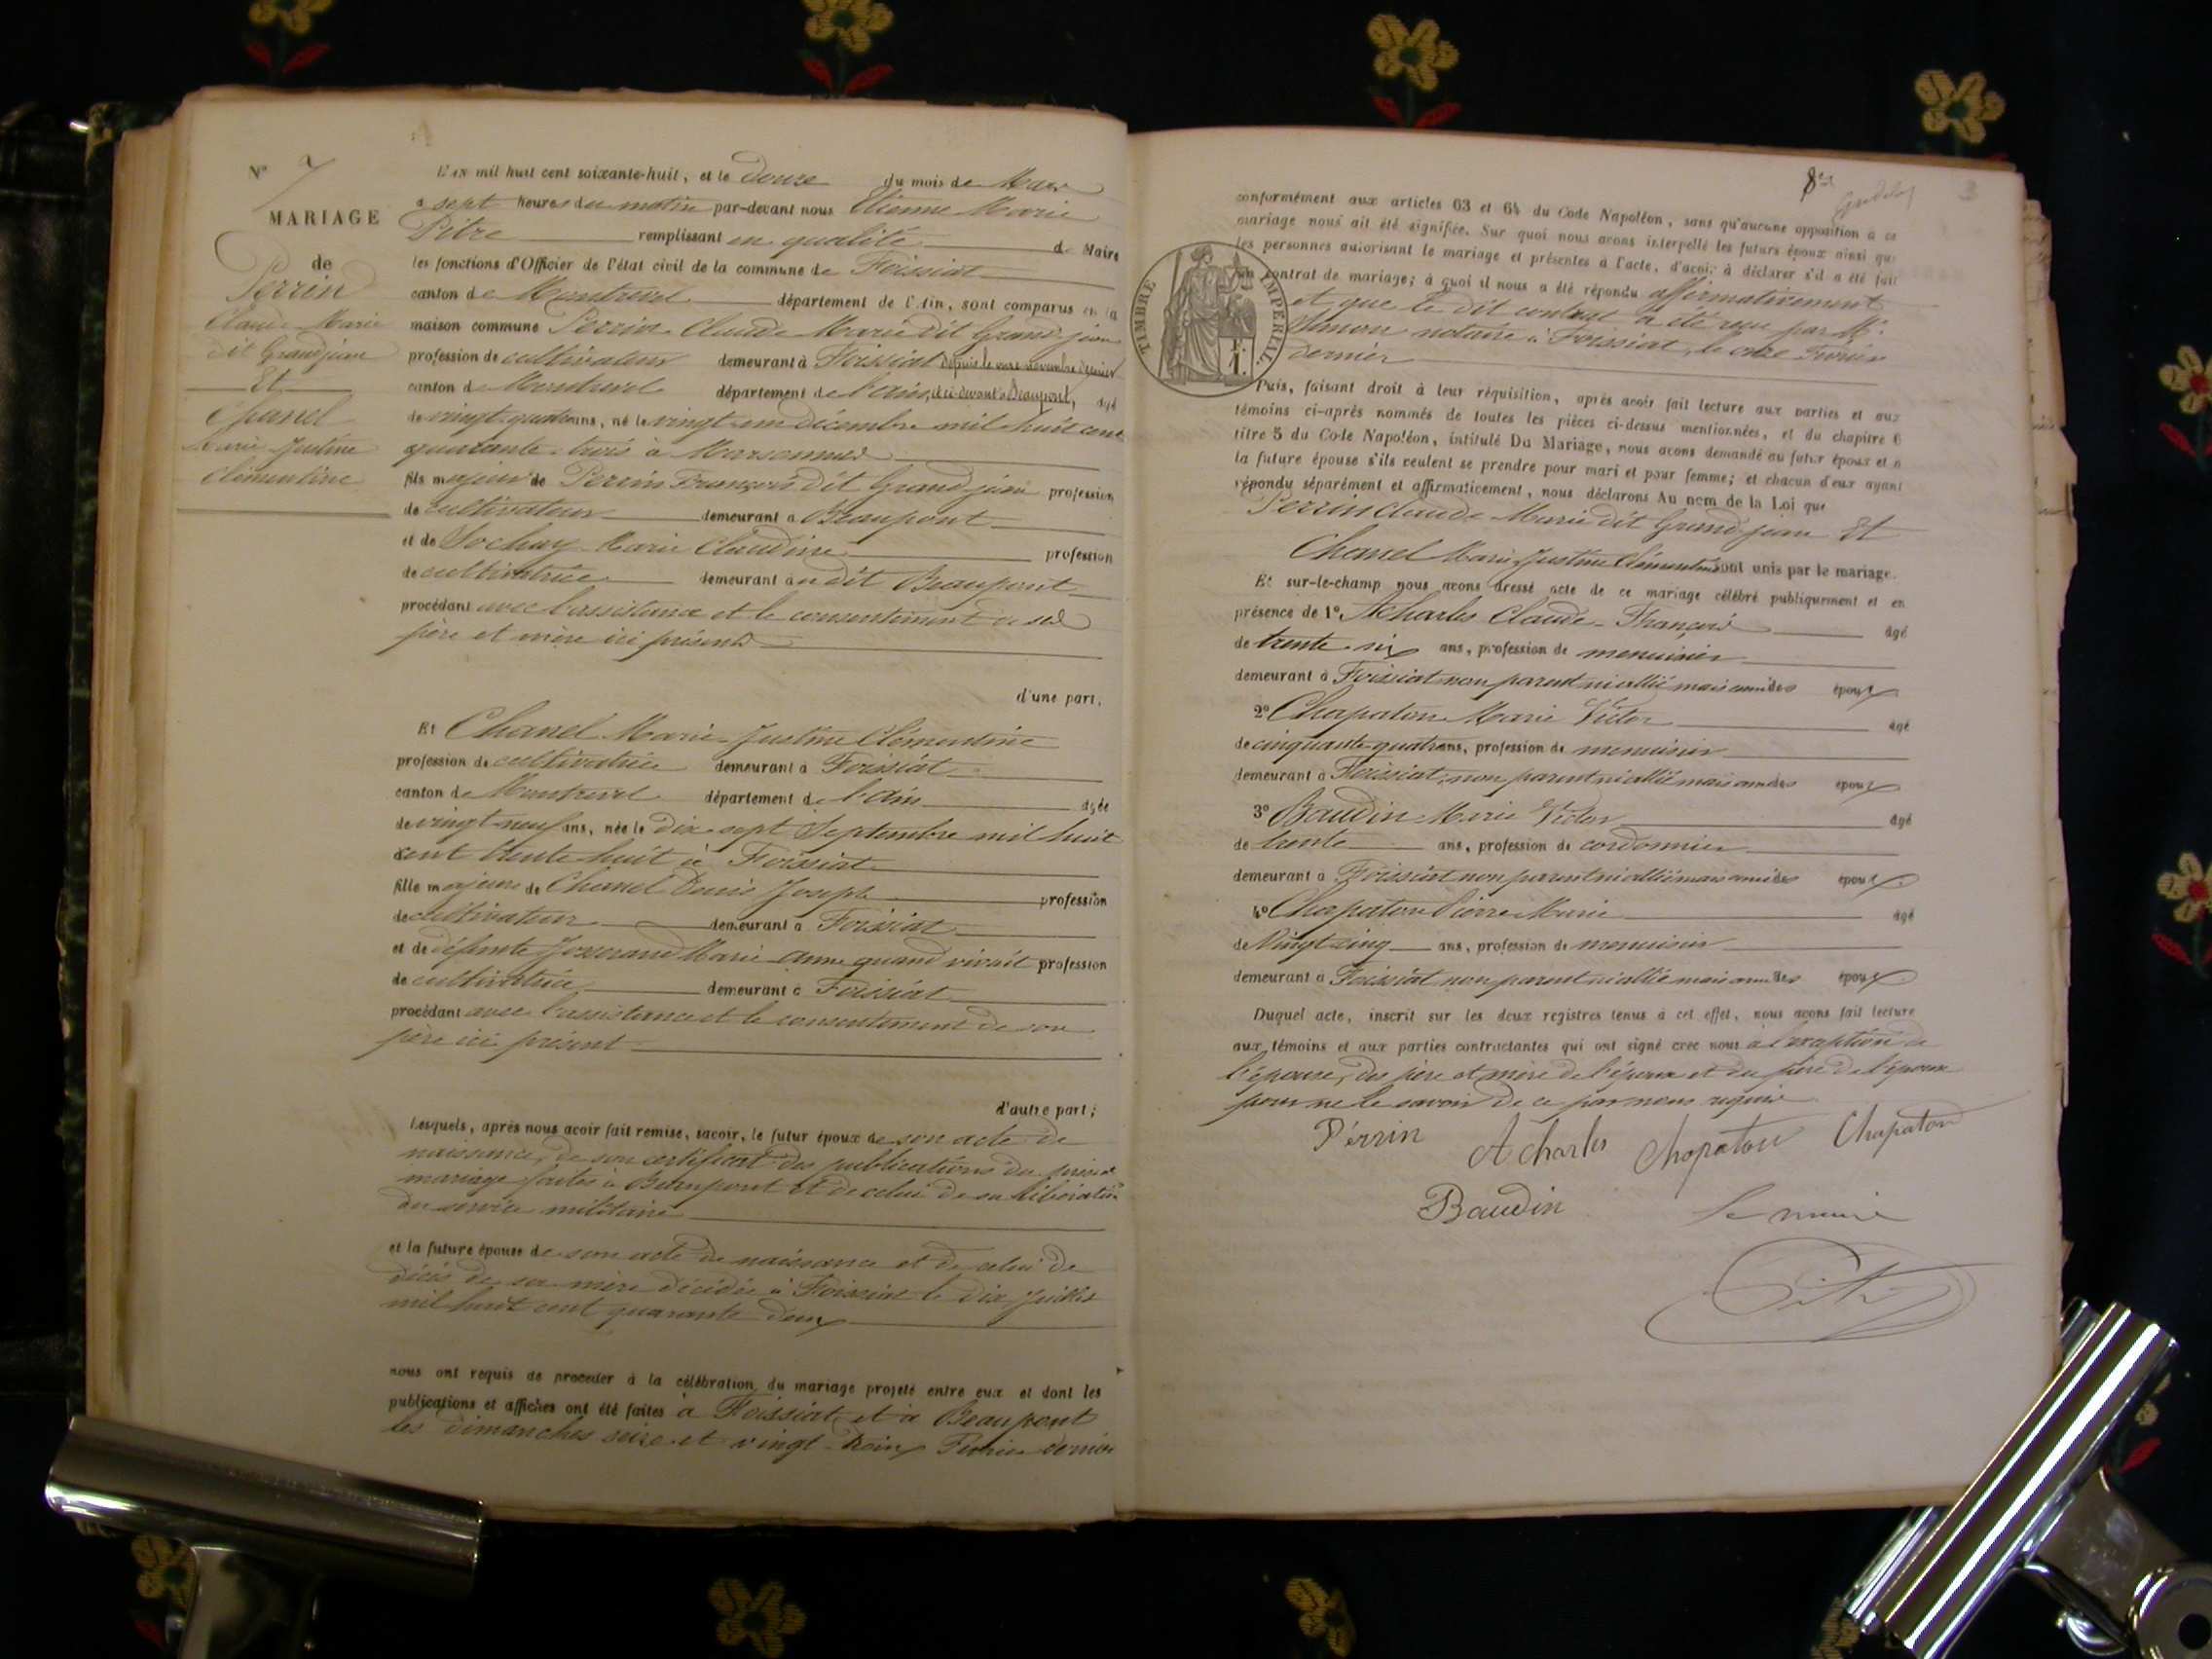 N° 7
MARIAGE
de
Perrin
Claude Marie
dit Grandjean
Et
Chanel
Marie Justine
Clémentine
L'AN mil huit cent soixante-huit, et le Douze du mois de Mars
à sept heures du matin par-devant nous Etienne Marie
Pitre remplissant en qualité de Maire
les fonctions d'Officier de l'état civil de la commune de Foissiat
canton de Montrevel département de l'Ain, sont comparus en la
maison commune Perrin Claude Marie dit Grand-jean
profession de cultivateur demeurant à Foissiat depuis le onze novembre dernier
canton de Montrevel département de l'ain, et ci-devant à Beaupont, âgé
de vingt-quatre ans, né le vingt-un décembre mil huit cent
quarante-trois à Marsonnas
fils majeur de Perrin François dit Grand-jean profession
de cultivateur demeurant à Beaupont
et de Sochay Marie Claudine profession
de cultivatrice demeurant au dit Beaupont
procédant avec l'assistance et le consentement de ses
père et mère ici présents
d'une part.
Et Chanel Marie-Justine Clémentine
profession de cultivatrice demeurant à Foissiat
canton de Montrevel département de l'ain âgée
de vingt-neuf ans, née le Dix-sept Septembre mil huit
cent trente huit à Foissiat
fille majeure de Chanel Denis Joseph profession
de cultivateur demeurant à Foissiat
et de défunte Josserand Marie-Anne quand vivait profession
de cultivatrice demeurant à Foissiat
procédant avec l'assistance et le consentement de son
père ici présent
d'autre part;
Lesquels, après nous avoir fait remise, savoir, le futur époux de son acte de
naissance, de son certificat des publications du présent
mariage faites à Beaupont et de celui de sa libération
du service militaire
et la future épouse de son acte de naissance et de celui de
décès de sa mère décédée à Foissiat le dix Juillet
mil huit cent quarante deux
nous ont requis de procéder à la célébration du mariage projeté entre eux et dont les
publications et affiches ont été faites à Foissiat et à Beaupont
les dimanches seize et vingt-trois Février dernier
8
3
conformément aux articles 63 et 64 du Code Napoléon, sans qu'aucune opposition à ce
mariage nous ait été signifiée. Sur quoi nous avons interpellé les futurs époux ainsi que
les personnes autorisant le mariage et présentes à l'acte, d'avoir à déclarer s'il a été fait
un contrat de mariage; à quoi il nous a été répondu affirmativement
et que le dit contrat a été reçu par Me
Simon notaire à Foissiat, le onze Février
dernier
TIMBRE IMPERIAL
1.
Puis, faisant droit à leur réquisition, après avoir fait lecture aux parties et aux
témoins ci-après nommés de toutes les pièces ci-dessus mentionnées, et du chapitre 6
titre 5 du Code Napoléon, intitulé Du Mariage, nous avons demandé au futur époux et à
la future épouse s'ils veulent se prendre pour mari et pour femme; et chacun d'eux ayant
répondu séparément et affirmativement, nous déclarons Au nom de la Loi que
Perrin Claude Marie dit Grand-jean Et
Chanel Marie Justine Clémentine sont unis par le mariage.
Et sur-le-champ nous avons dressé acte de ce mariage célébré publiquement et en
présence de 1° Acharles Claude-François âgé
de trente-six ans, profession de menuisier
demeurant à Foissiat non parent ni allié mais ami des époux
2° Chapaton Marie Victor âgé
de cinquante-quatre ans, profession de menuisier
demeurant à Foissiat, non parent ni allié mais ami des époux
3° Baudin Marie Victor âgé
de trente ans, profession de cordonnier
demeurant à Foissiat non parent ni allié mais ami des époux
4° Chapaton Pierre Marie âgé
de Vingt cinq ans, profession de menuisier
demeurant à Foissiat non parent ni allié mais ami des époux
Duquel acte, inscrit sur les deux registres tenus à cet effet, nous avons fait lecture
aux témoins et aux parties contractantes qui ont signé avec nous à l'exception de
l'épouse, des père et mère de l'époux et du père de l'épouse
pour ne le savoir de ce par nous requis
Perrin Acharles Chapaton Chapaton
Baudin Le maire
Pitre